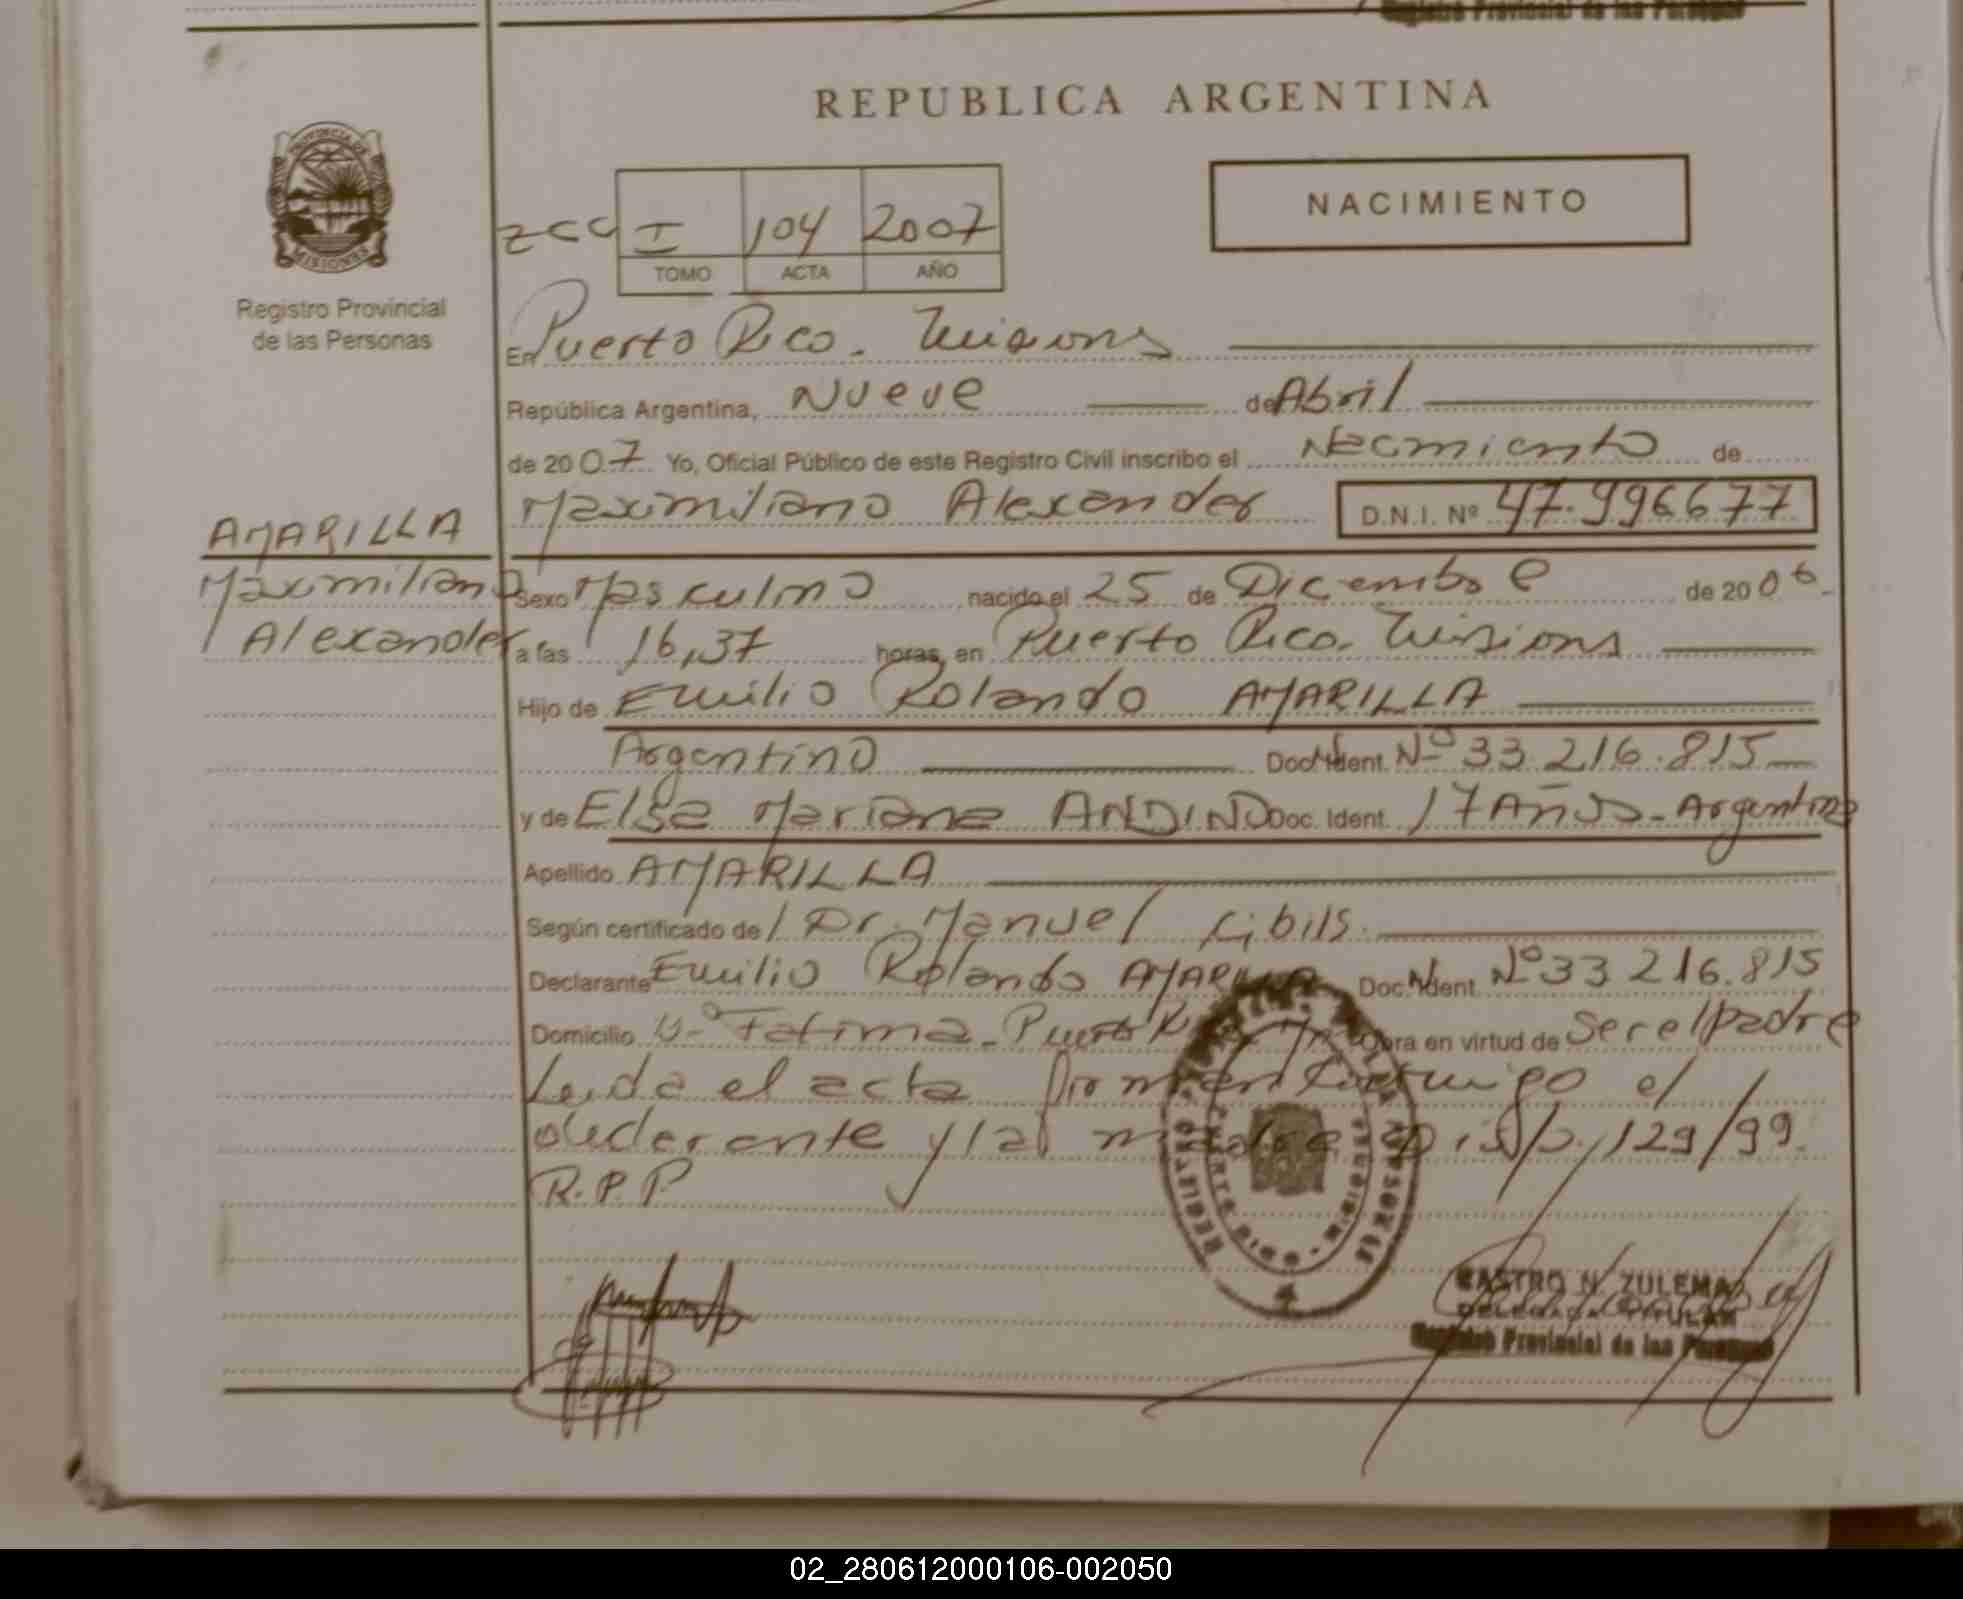 Registro Provincial de las Personas
REPUBLICA ARGENTINA
PROVINCIA DE
MISIONES
Registro Provincial
de las Personas
NACIMIENTO
I 104 2007
TOMO ACTA AÑO
En Puerto Rico. Misiones
República Argentina, Nueve de Abril
de 2007 Yo, Oficial Público de este Registro Civil inscribo el Nacimiento de
Maximiliano Alexander D.N.I. Nº 47.996677
AMARILLA
Maximiliano
Alexander
Sexo Masculino nacido el 25 de Diciembre de 2006
a las 16,37 horas, en Puerto Rico. Misiones
Hijo de Emilio Rolando AMARILLA
Argentino Doc. Ident. Nº 33.216.815
y de Elsa Mariana ANDINO Doc. Ident. 17 Años - Argentina
Apellido AMARILLA
Según certificado de Dr. Manuel Cibils.
Declarante Emilio Rolando AMARILLA Doc. Ident. Nº 33 216.815
Domicilio Fatima - Puerto Obra en virtud de ser el padre
Leida el acta firman conmigo el
declarante y la madre Disp. 129/99.
R.P.P
CASTRO N. ZULEMA
DELEGADA TITULAR
Registro Provincial de las Personas
02_280612000106-002050